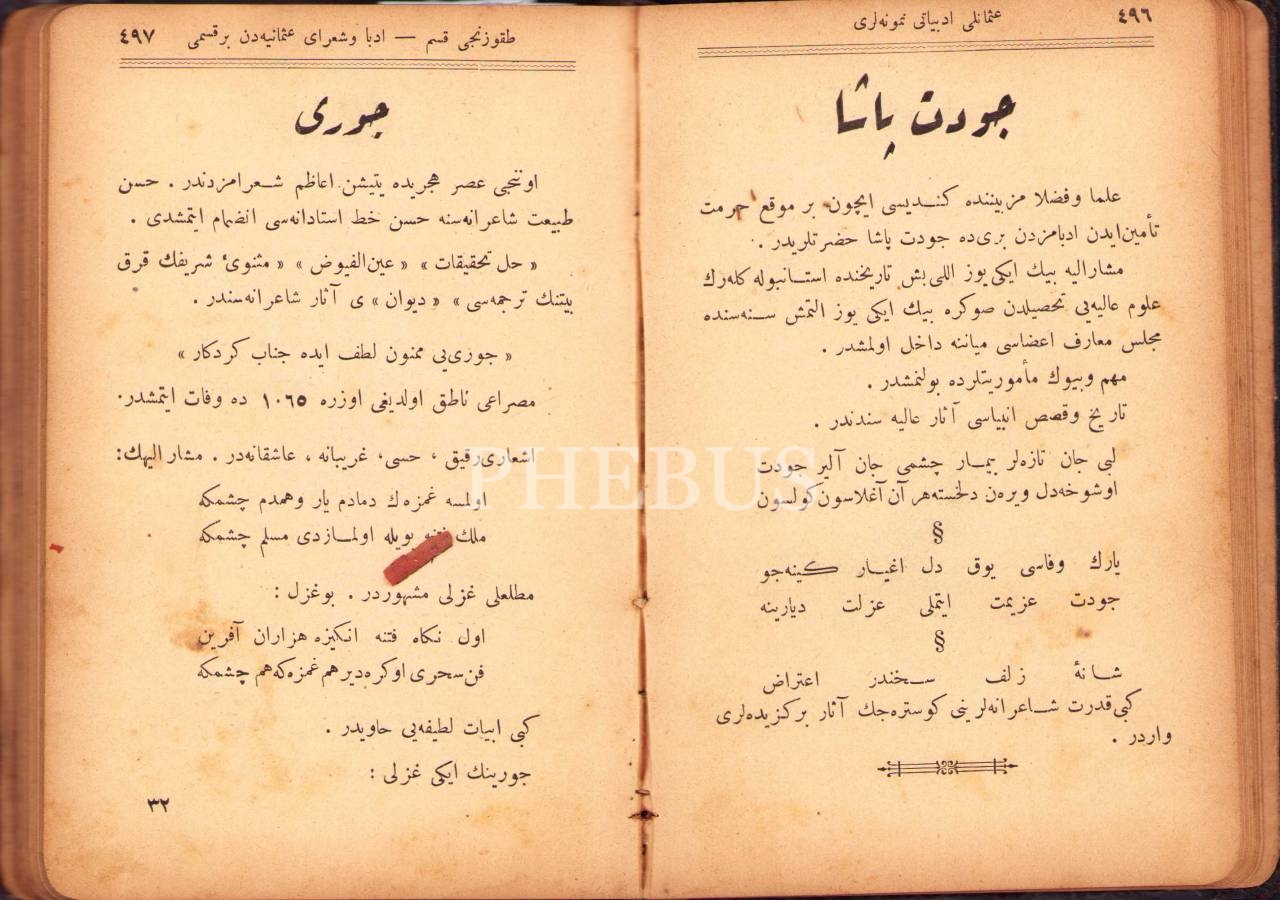 ٤٩٦
عثمانلی ادبیاتی نمونه‌لری
جودت پاشا
علما وفضلا مزبیننده کندیسی ایچون بر موقع حرمت
تأمین‌ایدن ادبامزدن بری‌ده جودت پاشا حضرتلریدر .
مشارالیه بیك ایكی یوز اللی‌بش تاریخنده استانبوله كله‌رك
علوم عالیه‌یی تحصیلدن صوكره بیك ایكی یوز التمش سنه‌سنده
مجلس معارف اعضاسی میاننه داخل اولمشدر .
مهم وبیوك مأموریتلرده بولنمشدر .
تاریخ وقصص انبیاسی آثار عالیه سندندر .
لبی جان تازه‌لر بیمار چشمی جان آلیر جودت
اوشوخه‌دل ویره‌ن دلخسته‌هر آن آغلاسون‌كولسون
§
یارك وفاسی یوق دل اغیار كینه‌جو
جودت عزیمت ایتملی عزلت دیارینه
§
شانهٔ زلف سخندر اعتراض
كبی‌قدرت شاعرانه‌لرینی كوستره‌جك آثار بركزیده‌لری
واردر .
طقوزنجی قسم — ادبا وشعرای عثمانیه‌دن برقسمی
٤٩٧
جوری
اوننجی عصر هجریده یتیشن اعاظم شعرامزدندر . حسن
طبیعت شاعرانه‌سنه حسن خط استادانه‌سی انضمام ایتمشدی .
« حل تحقیقات » « عین‌الفیوض » « مثنویٔ شریفك قرق
بیتنك ترجمه‌سی » « دیوان » ی آثار شاعرانه‌سندر .
« جوری‌یی ممنون لطف ایده جناب كردكار »
مصراعی ناطق اولدیغی اوزره ١٠٦٥ ده وفات ایتمشدر.
اشعاری‌رقیق ، حسی، غریبانه ، عاشقانه‌در . مشار الیهك:
اولمسه غمزه‌ك دمادم یار وهمدم چشمكه
ملك فتنه بویله اولمازدی مسلم چشمكه
مطلعلی غزلی مشهوردر . بوغزل :
اول نكاه فتنه انكیزه هزاران آفرین
فن‌سحری اوكره‌دیر هم غمزه‌كه‌هم چشمكه
كبی ابیات لطیفه‌یی حاویدر .
جورینك ایكی غزلی :
٣٢
PHEBUS